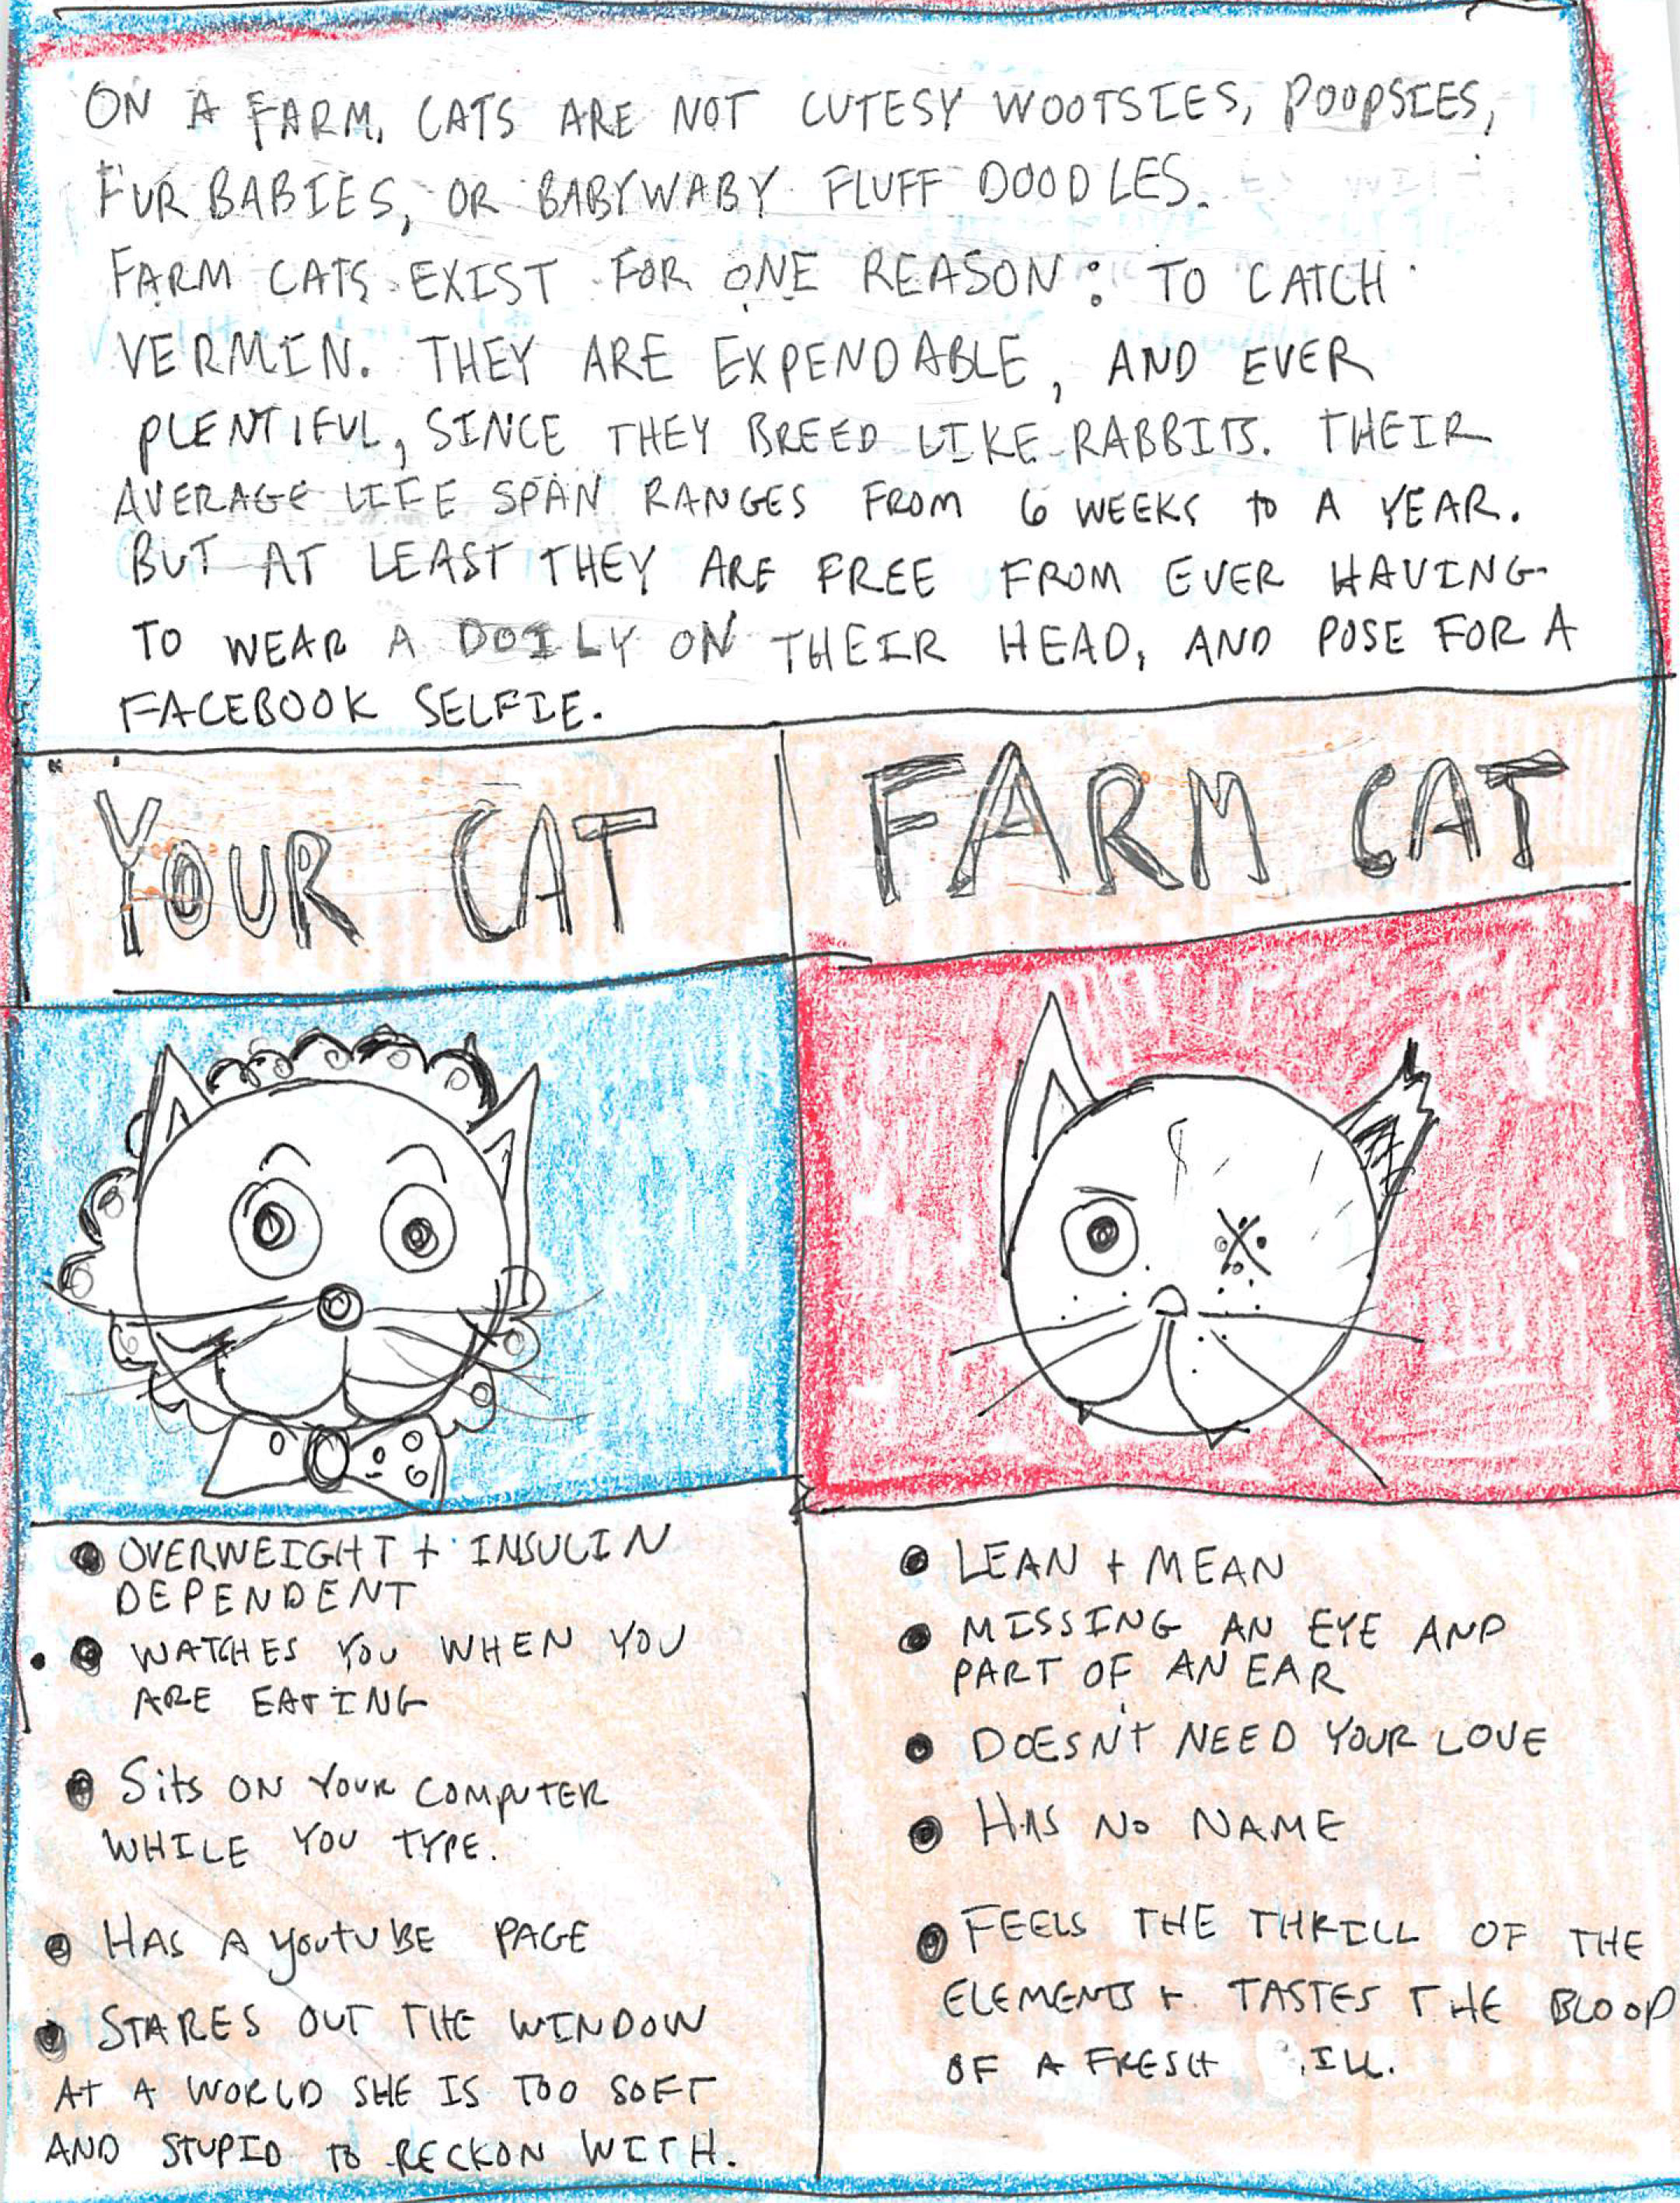 ON A FARM, CATS ARE NOT CUTESY WOOTSIES, POOPSIES,
FUR BABIES, OR BABYWABY FLUFF DOODLES.
FARM CATS EXIST FOR ONE REASON: TO CATCH
VERMIN. THEY ARE EXPENDABLE, AND EVER
PLENTIFUL, SINCE THEY BREED LIKE RABBITS. THEIR
AVERAGE LIFE SPAN RANGES FROM 6 WEEKS to A YEAR.
BUT AT LEAST THEY ARE FREE FROM EVER HAVING
TO WEAR A DOILY ON THEIR HEAD, AND POSE FOR A
FACEBOOK SELFIE.
YOUR CAT
FARM CAT
• OVERWEIGHT + INSULIN
DEPENDENT
• WATCHES YOU WHEN YOU
ARE EATING
• Sits ON YOUR COMPUTER
WHILE YOU TYPE.
• HAS A YouTUBE PAGE
• STARES OUT THE WINDOW
At A WORLD SHE IS TOO SOFT
AND STUPID to RECKON WITH.
• LEAN + MEAN
• MISSING AN EYE AND
PART OF AN EAR
• DOESN'T NEED YOUR LOVE
• HAS NO NAME
• FEELS THE THRILL OF THE
ELEMENTS + TASTES THE BLOOD
OF A FRESH